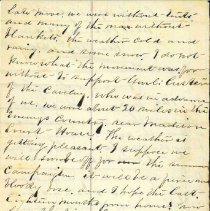 Late move, we were without tents
and many of the men without
blankets, the weather cold and
rainy, and some snow, I do not
know what the movement was for
unless to support Genl. Custer
of the Cavalry. Who was in advance
of us, we went about 20 miles in the
Enemys Country near Madison
Court House. The weather is
getting pleasant, I suppose we
will soon be off for the summer
Campaign it will be a furious
bloody one, and I hope the last
Eighteen months from home